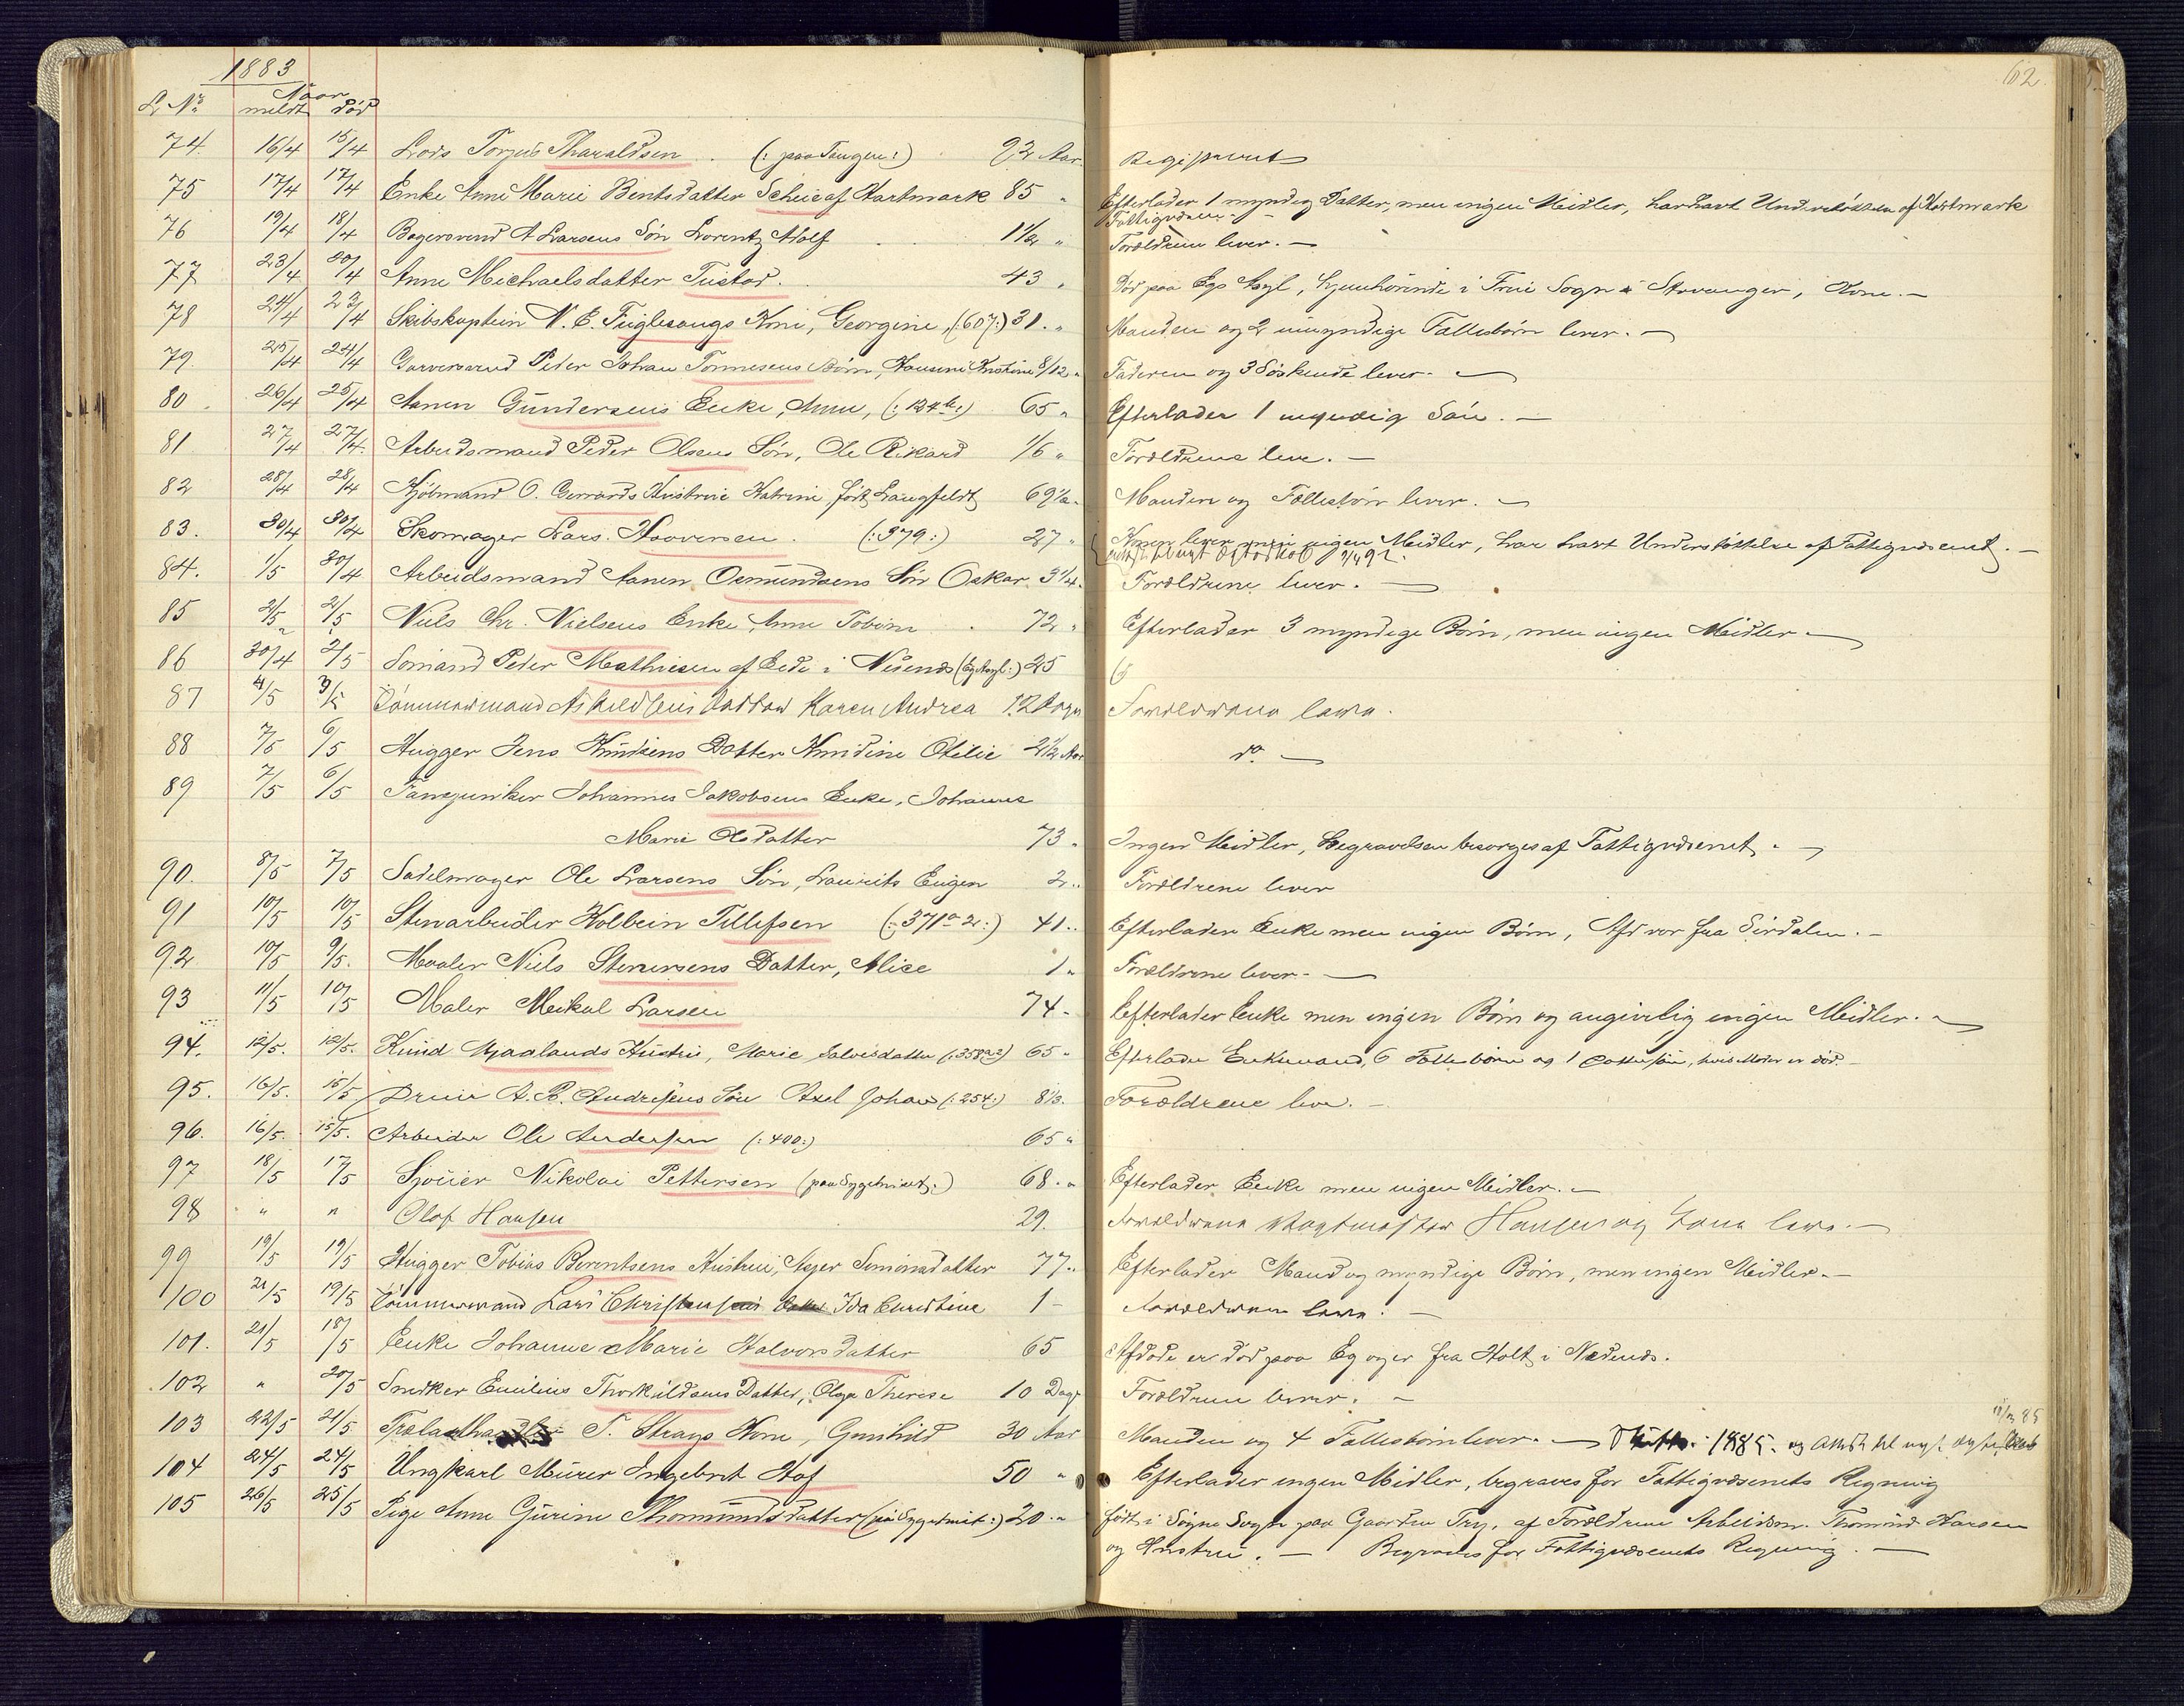 1883
62.
L. No. Naar
meldt død
74. 16/4 15/4 Lods Torjus Tharaldsen . (: paa Tangen :) 92 Aar Registreret
75 17/4 17/4 Enke Anne Marie Bentsdatter Scheie af Hartmark 85 " Efterlader 1 myndig Datter, men ingen Midler, har havt Understøttelse af Hartmark
Fattigvæsen. —
76 19/4 18/4 Bagersvend A Larsens Søn Lorentz Adolf 1 1/2 " Forældrene lever. —
77 23/4 20/4 Anne Michaelsdatter Tustad. 43 " Død paa Egs Asyl, hjemhørende i Frue Sogn i Stavanger, Kone. —
78 24/4 23/4 Skibskaptein N. E. Fuglesangs Kone, Georgine, (: 607 :) 31. " Manden og 2 umyndige Fællesbørn lever. —
79. 25/4 24/4 Garversvend Peder Johan Tønnesens Barn, Hansine Kristine 8/12 " Faderen og 3 Søskende lever. —
80. 26/4 25/4 Aanen Gundersens Enke, Anne, (: 134 b :) 65 " Efterlader 1 myndig Søn. —
81 27/4 27/4. Arbeidsmand Peder Olsens Søn, Ole Rikard 1/6 " Forældrene leve. —
82 28/4 28/4 Kjøbmand O. Gerrards Hustrue Katrine født Langfeldt 69 1/2 " Manden og Fællesbørn lever. —
83. 30/4 30/4 Skomager Lars Haaversen. (: 379 :) 27 " Konen lever men ingen Midler, har havt Understøttelse af Fattigvæsenet. —
84. 1/5 30/4 Arbeidsmand Aanen Osmundsens Søn Oskar 3 1/4. Forældrene lever. —
85 2/5 2/5 Niels Chr. Nielsens Enke, Anne Tobine 72 " Efterlader 3 myndige Børn, men ingen Midler —
86 30/4 2/5 Sømand Peder Mathiesen af Eide i Nedenæs (Eg Asyl :) 25
87 4/5 3/5 Tømmermand Askildsens Datter Karen Andrea 12 Dage Forældrene leve.
88 7/5 6/5 Hugger Jens Knudsens Datter Knudine Otilie 2 1/2 Aar do. —
89 7/5 6/5 Johannes Jakobsens Enke, Johanne
Marie Olsdatter 73 " Ingen Midler, Begravelsen besorges af Fattigvæsenet. —
90. 8/5 7/5 Sadelmager Ole Larsens Søn, Laurits Eugen 2 " Forældrene lever
91 10/5 10/5 Stenarbeider Kolbein Tellefsen (: 371 a 2 :) 41 " Efterlader Enke men ingen Børn, Afd var fra Sirdalen. —
92 10/5 9/5. Maaler Niels Stenersens Datter, Alice 1 " Forældrene lever. —
93 11/5 10/5 Maler Meikal Larsen 74 " Efterlader Enke men ingen Børn og angivelig ingen Midler. —
94. 12/5. 12/5. Knud Mjaalands Hustru, Marie Salvesdatter (: 358 a 2) 65 " Efterlader Enkemand, 6 Fællesbørn og 1 Dattersøn, hvis Moder er død. —
95. 16/5. 15/5 A. B. Andresens Søn Axel Johan (: 254 :) 8 1/3. Forældrene leve. —
96. 16/5. 15/5. Arbeider Ole Andersen (: 400 :) 65 "
97 18/5 17/5 Sjouer Nikolai Pettersen (paa Sygehuset :) 68. " Efterlader Enke men ingen Midler. —
98 " " Olaf Hansen 29. Forældrene Vagtmester Hansen og Kone leve. —
99 19/5 19/5 Hugger Tobias Berentsens Hustrue, Asjer Simonsdatter 77 " Efterlader Mand og myndige Børn, men ingen Midler. —
100 21/5 19/5 Tømmermand Lars Christensens Datter Ida Christine 1 — Forældrene leve. —
101. 21/5 18/5 Enke Johanne Marie Halvorsdatter 65 Afdøde er død paa Eg og er fra Holt i Nedenes.
102 " 20/5 Snedker Emilius Thorkildsens Datter, Olga Therese 10 Dage Forældrene lever. —
103 22/5 21/5. Trælasthandler T. Strays Kone, Gunhild 30 Aar Manden og 4 Fællesbørn lever. — 1885.
104 24/5 24/5 Ungkarl Murer Ingebret Hof 50 " Efterlader ingen Midler, begraves for Fattigvæsenets Regning
105 26/5. 25/5 Pige Anne Gurine Thomundsdatter (paa Sygehuset :) 20 " født i Søgne Sogn paa Gaarden Try, af Forældrene Arbeidsm. Thomund Hansen
og Hustrue. — Begraves for Fattigvæsenets Regning. —